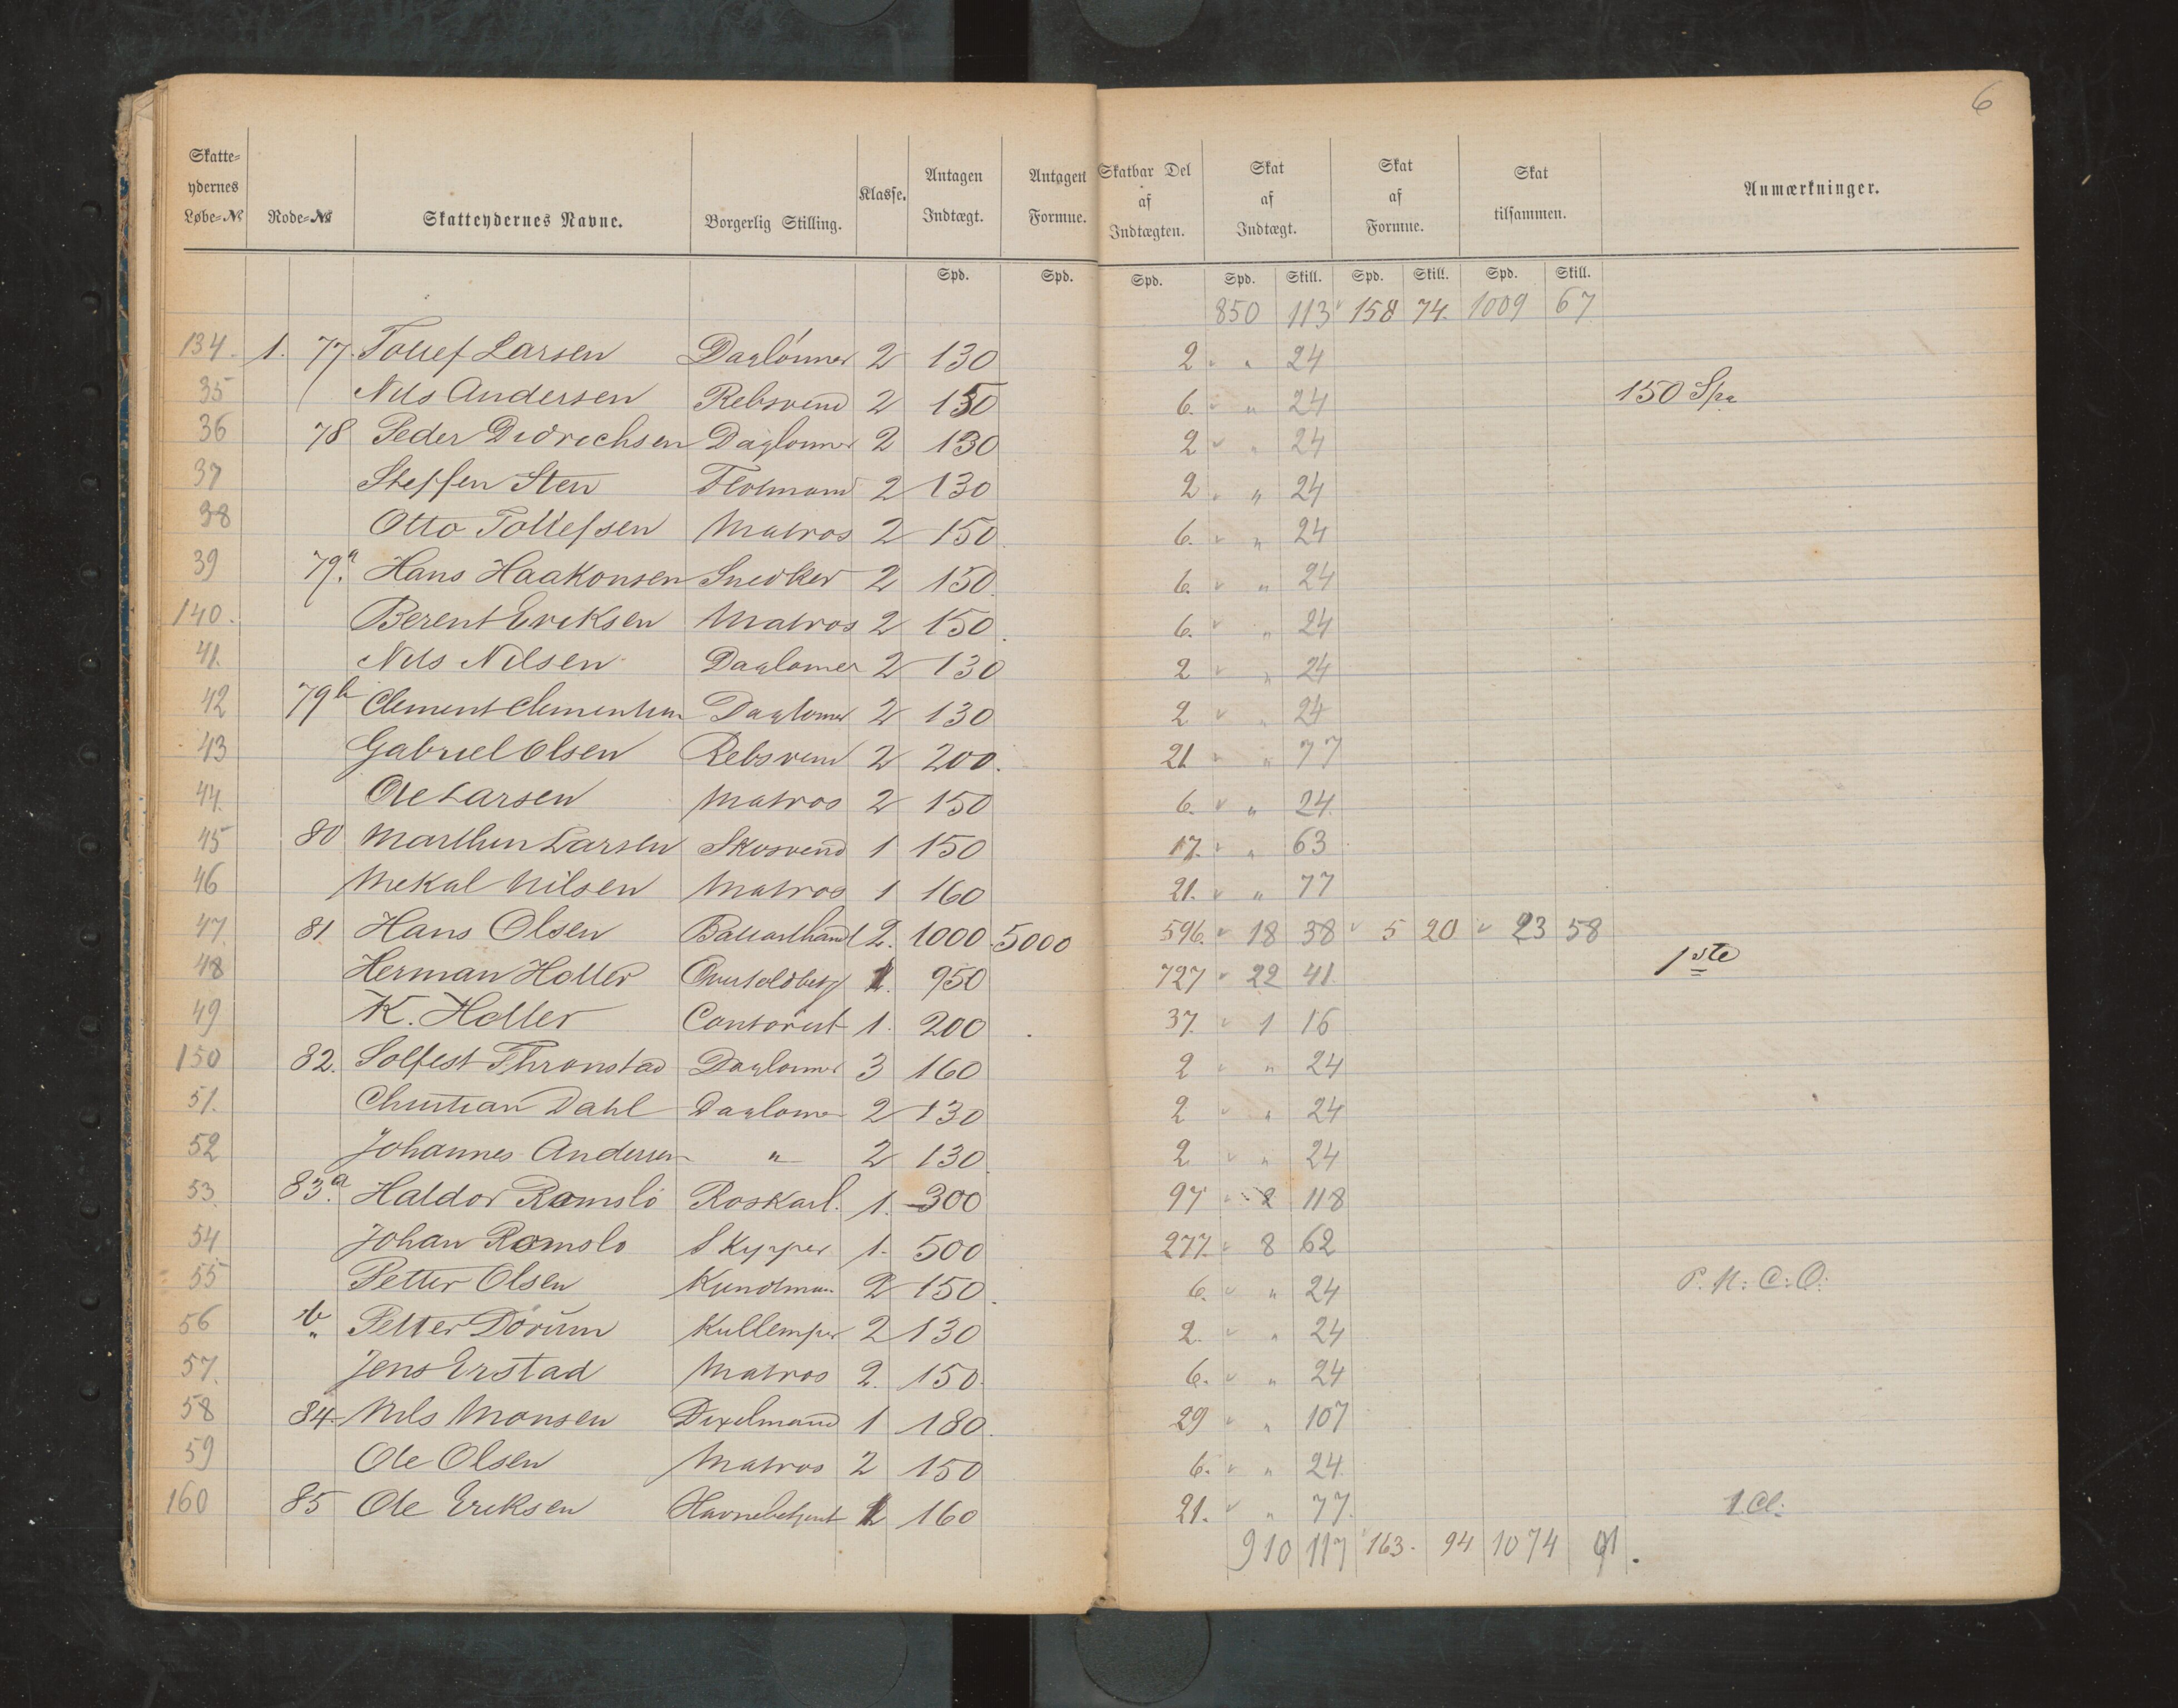 6
Skatte-ydernes Løbe-№ Rode-№ Skatteydernes Navne. Borgerlig Stilling. Klasse. Antagen Indtægt. Antagen Formue. Skatbar Del af Indtægten. Skat af Indtægt. Skat af Formue. Skat tilsammen. Anmærkninger.
Spd. Spd. Spd. Spd. Skill. Spd. Skill. Spd. Skill.
850 113 158 74. 1009 67
134. 1. 77. Tollef Larsen Daglönner 2 130 2 " 24
35 Nils Andersen Rebsvend 2 150 6. " 24 150 Spd
36 78 Peder Didrichsen Daglonner 2 130 2 " 24
37 Steffen Sten Flotmand 2 130 2 " 24
38 Otto Tollefsen Matros 2 150 6. " 24
39 79.a Hans Haakonsen Snedker 2 150. 6. " 24
140. Berent Eriksen Matros 2 150. 6. " 24
41. Nils Nilsen Daglonner 2 130 2 " 24
42 79b Clement Clementsen Daglonner 2 130 2 " 24
43 Gabriel Olsen Rebsvend 2 200. 21 " 77
44. Ole Larsen Matros 2 150 6. " 24.
45 80 Marthin Larsen Skosvend 1 150 17. " 63
46 Mekal Nilsen Matros 1 160 21. " 77
47. 81 Hans Olsen 2. 1000 5000 596. 18 38 5 20 23 58
48 Herman Holler 1. 950 727 22 41. 1ste
49 K. Holler Contorist 1. 200 37. 1 16
150 82. Solfest Thronstad Daglonner 3 160 2 " 24
51. Christian Dahl Daglonner 2 130 2 " 24
52 Johannes Andersen " 2 130 2 " 24
53. 83.a Haldor Romslo Roskarl. 1. 300 97 2 118
54 Johan Romslo Skypper 1. 500 277. 8 62
55 Petter Olsen 2 150. 6. " 24 P. N: C: O:
56 b " Petter Dörum Kullemper 2 130 2. " 24
57. Jens Erstad Matros 2. 150. 6. " 24
58 84 Nils Monsen Dixelmand 1 180. 29 " 107
59 Ole Olsen Matros 2 150 6. " 24.
160 85 Ole Eriksen Havnebetjent 1 160 21. " 77. 1 Cl:
910 117 163. 94 1074 91.